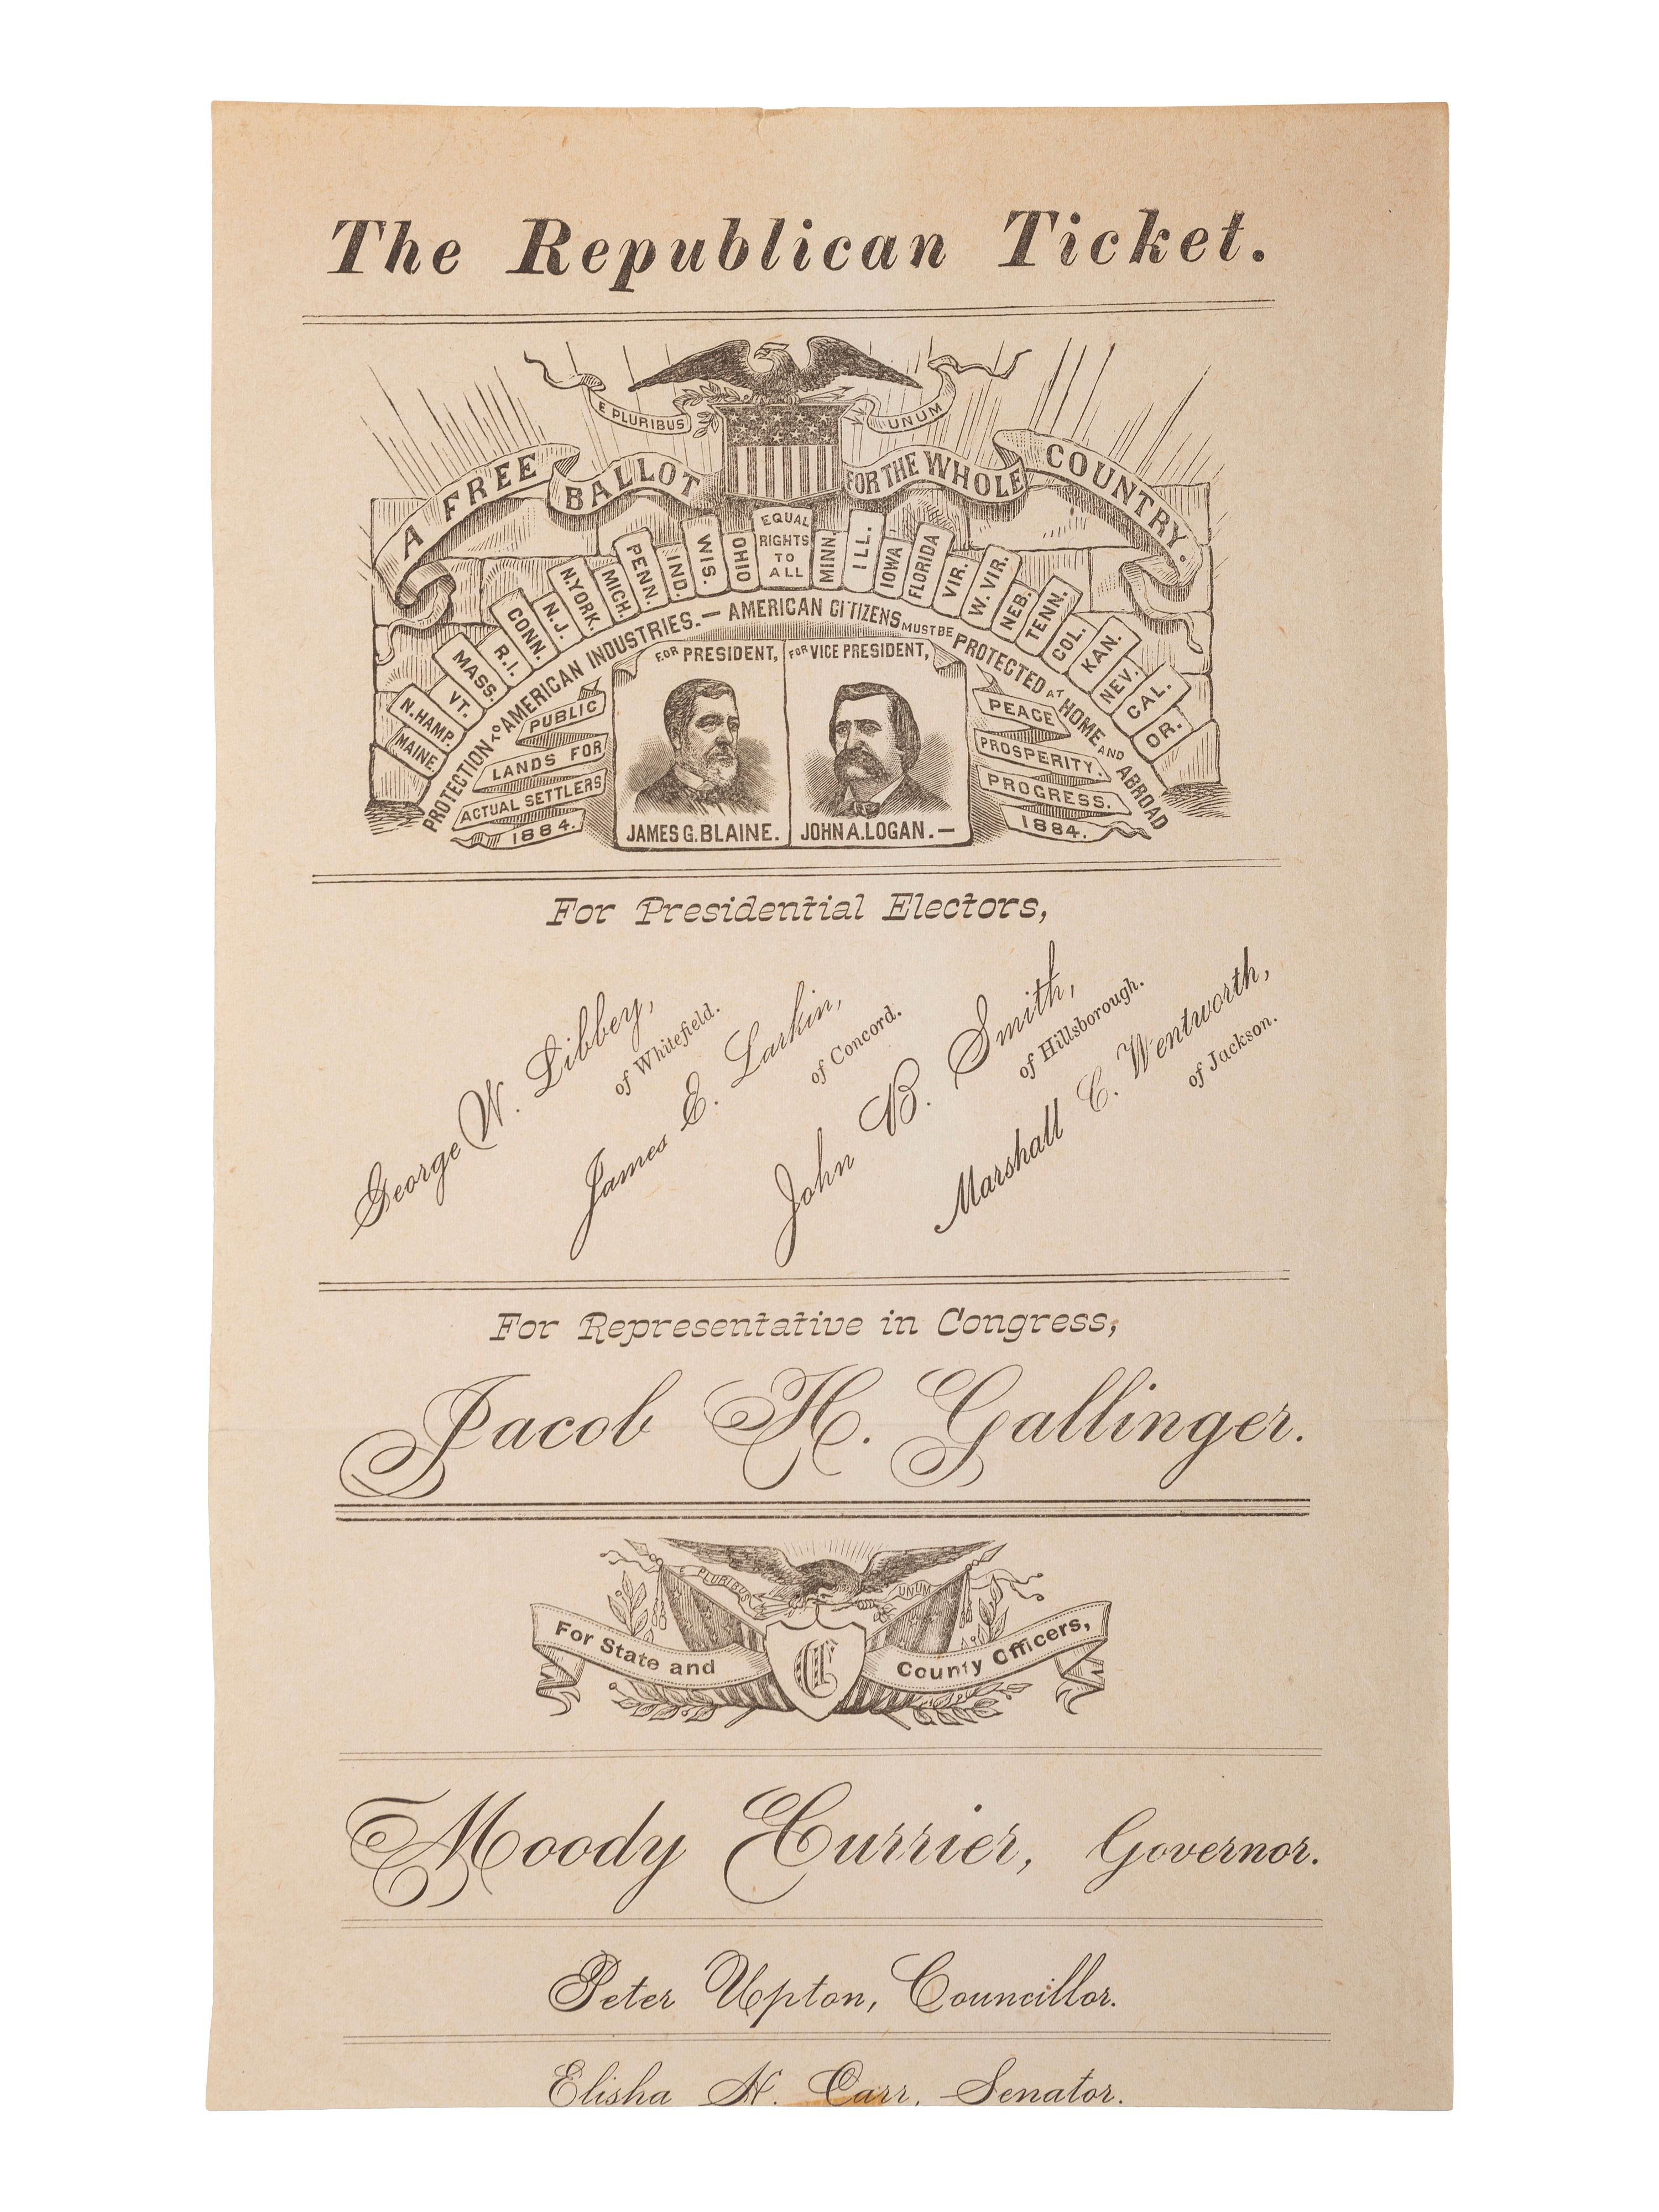 The Republican Ticket.
E PLURIBUS UNUM
A FREE BALLOT FOR THE WHOLE COUNTRY.
MAINE. N.HAMP. VT. MASS. R.I. CONN. N.J. N.YORK. MICH. PENN. IND. WIS. OHIO EQUAL RIGHTS TO ALL MINN. ILL. IOWA FLORIDA VIR. W. VIR. NEB. TENN. COL. KAN. NEV. CAL. OR.
PROTECTION TO AMERICAN INDUSTRIES.— AMERICAN CITIZENS MUST BE PROTECTED AT HOME AND ABROAD
PUBLIC
LANDS FOR
ACTUAL SETTLERS
1884.
FOR PRESIDENT,
JAMES G. BLAINE.
FOR VICE PRESIDENT,
JOHN A. LOGAN.—
PEACE
PROSPERITY.
PROGRESS.
1884.
For Presidential Electors,
George W. Libbey,
of Whitefield.
James E. Larkin,
of Concord.
John B. Smith,
of Hillsborough.
Marshall C. Wentworth,
of Jackson.
For Representative in Congress,
Jacob H. Gallinger.
PLURIBUS UNUM
For State and County Officers,
Moody Currier, Governor.
Peter Upton, Councillor.
Elisha H. Carr, Senator.